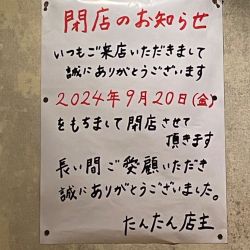 閉店のお知らせ
いつもご来店いただきまして
誠にありがとうございます
2024年9月20日(金)
をもちまして閉店させて
頂きます
長い間ご愛顧いただき
誠にありがとうございました。
たんたん店主